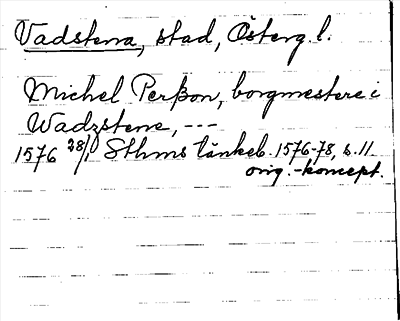 Vadstena, stad, Österg.l.
Michel Perßon, borgmestere i
Wadzstene, ---
1576 28/1 Sthms tänkeb. 1576-78, s. 11
orig.-koncept.